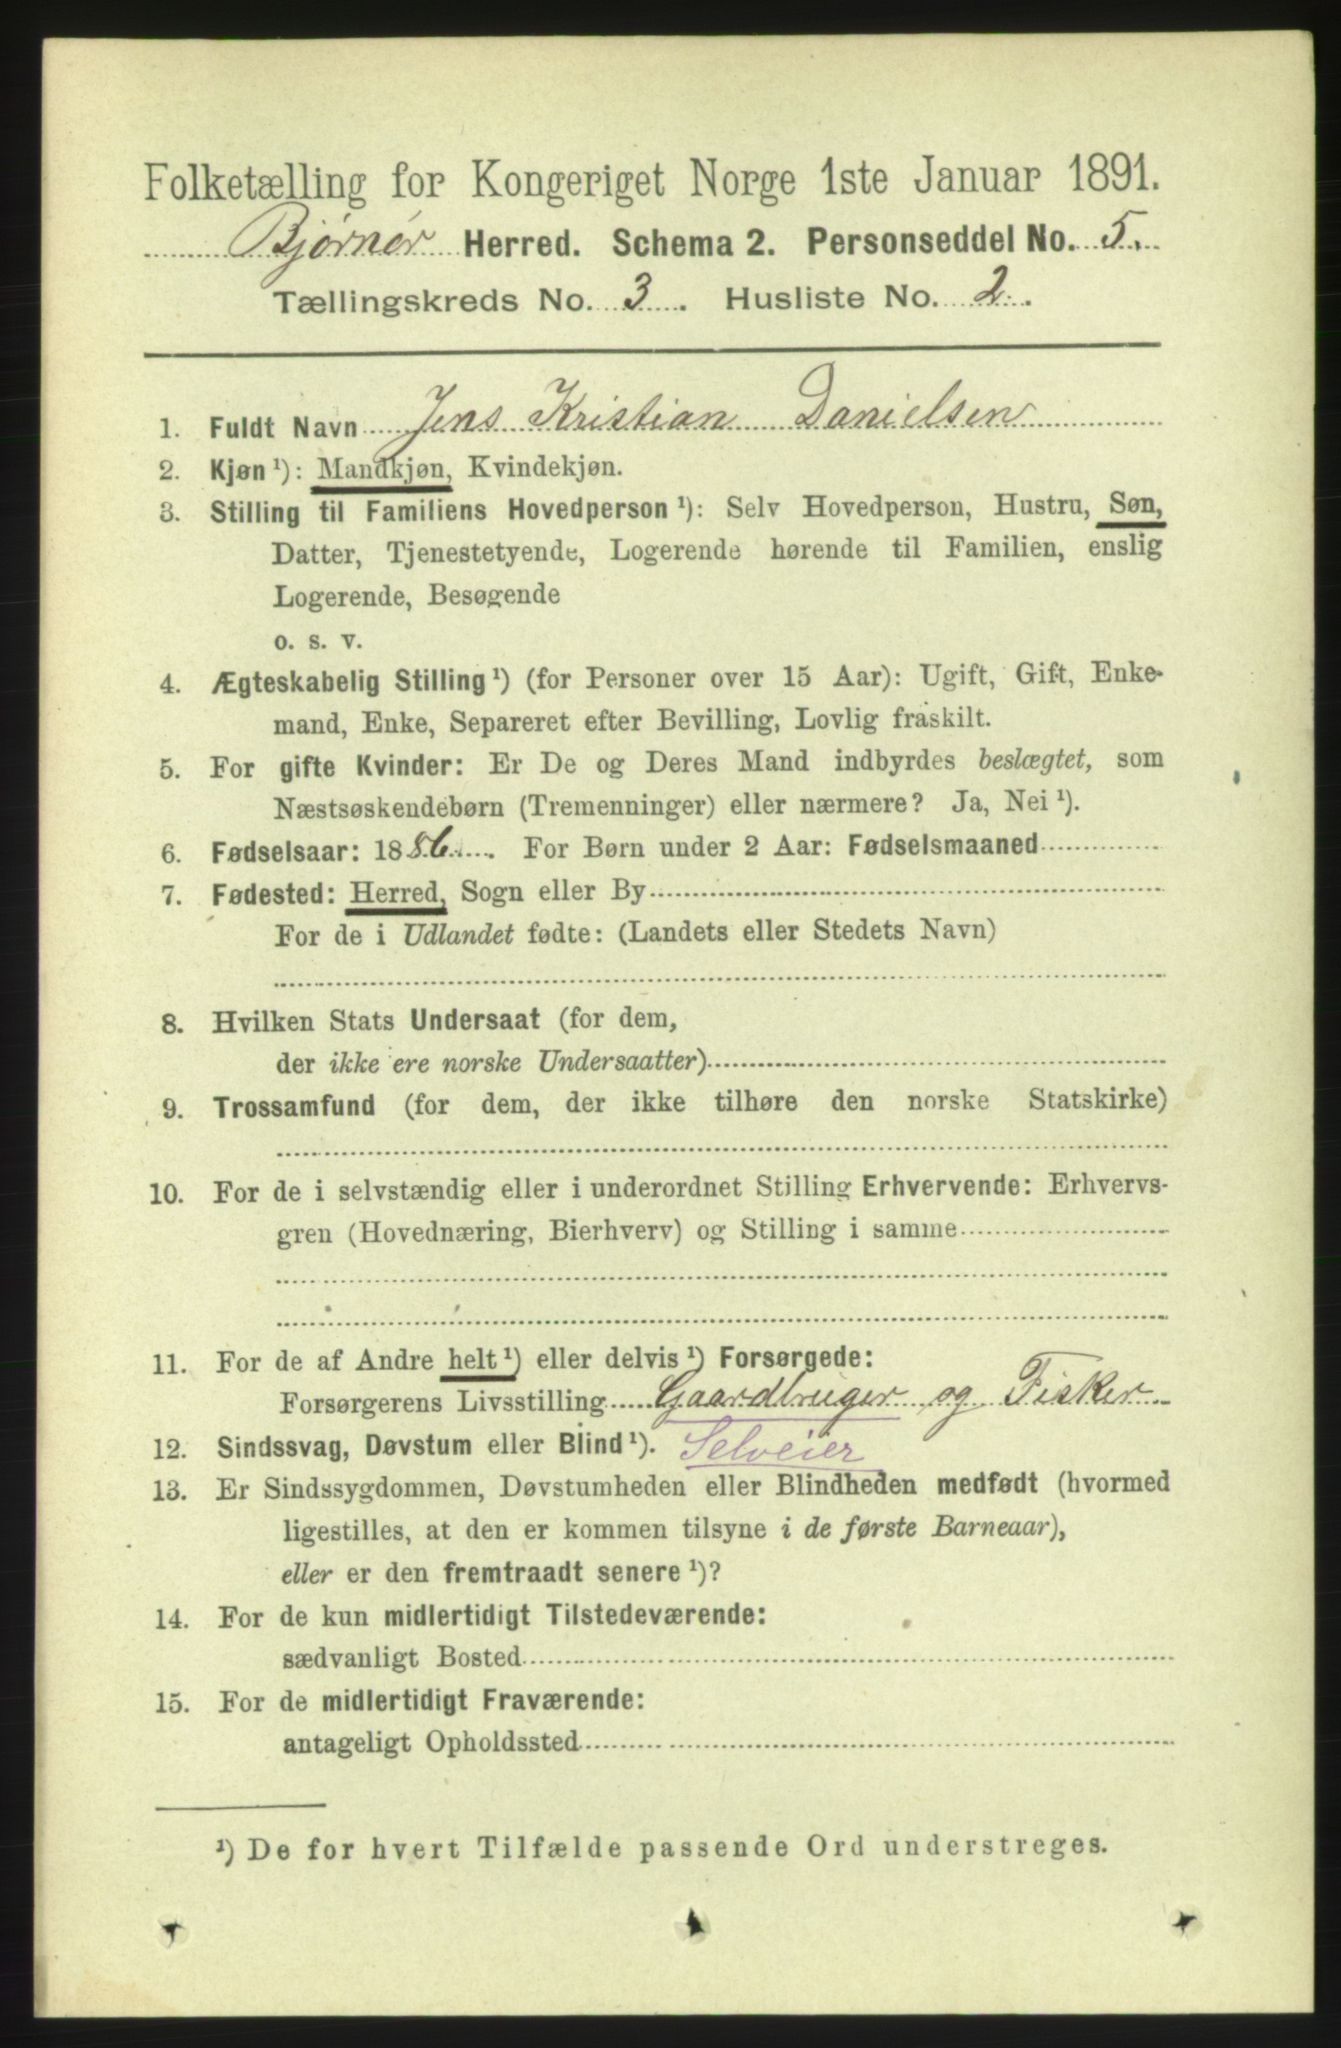 Folketælling for Kongeriget Norge 1ste Januar 1891.
Bjørnør Herred. Schema 2. Personseddel No. 5.
Tællingskreds No. 3. Husliste No. 2.
1. Fuldt Navn Jens Kristian Danielsen
2. Kjøn ¹): Mandkjøn, Kvindekjøn.
3. Stilling til Familiens Hovedperson ¹): Selv Hovedperson, Hustru, Søn,
Datter, Tjenestetyende, Logerende hørende til Familien, enslig
Logerende, Besøgende
o. s. v.
4. Ægteskabelig Stilling ¹) (for Personer over 15 Aar): Ugift, Gift, Enke-
mand, Enke, Separeret efter Bevilling, Lovlig fraskilt.
5. For gifte Kvinder: Er De og Deres Mand indbyrdes beslægtet, som
Næstsøskendebørn (Tremenninger) eller nærmere? Ja, Nei ¹).
6. Fødselsaar: 1886. For Børn under 2 Aar: Fødselsmaaned
7. Fødested: Herred, Sogn eller By
For de i Udlandet fødte: (Landets eller Stedets Navn)
8. Hvilken Stats Undersaat (for dem,
der ikke ere norske Undersaatter)
9. Trossamfund (for dem, der ikke tilhøre den norske Statskirke)
10. For de i selvstændig eller i underordnet Stilling Erhvervende: Erhvervs-
gren (Hovednæring, Bierhverv) og Stilling i samme
11. For de af Andre helt ¹) eller delvis ¹) Forsørgede:
Forsørgerens Livsstilling Gaardbruger og Fisker
12. Sindssvag, Døvstum eller Blind ¹). Selveier
13. Er Sindssygdommen, Døvstumheden eller Blindheden medfødt (hvormed
ligestilles, at den er kommen tilsyne i de første Barneaar),
eller er den fremtraadt senere ¹)?
14. For de kun midlertidigt Tilstedeværende:
sædvanligt Bosted
15. For de midlertidigt Fraværende:
antageligt Opholdssted
¹) De for hvert Tilfælde passende Ord understreges.